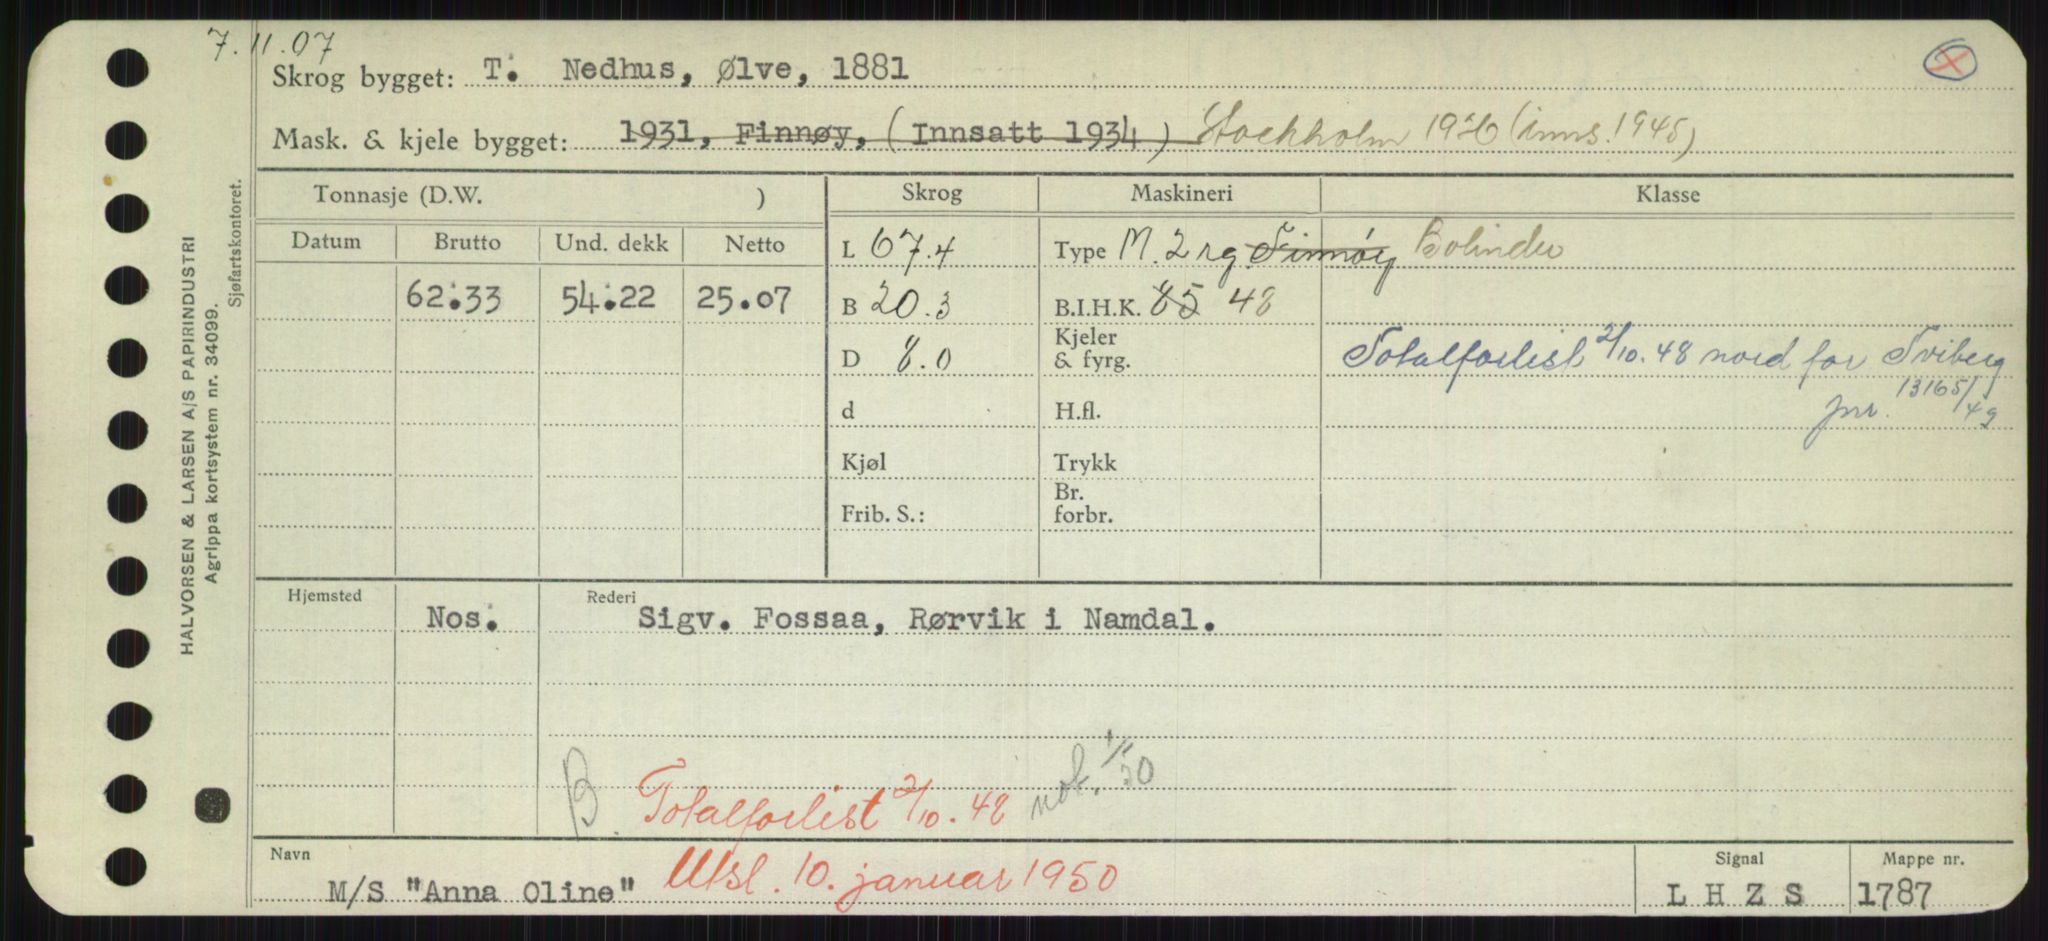 7.11.07
Skrog bygget: T. Nedhus, Ølve, 1881
Mask. & kjele bygget: 1931, Finnøy, (Innsatt 1934) Stockholm 1926 (inns. 1945)
Tonnasje (D.W. ) Skrog Maskineri Klasse
Datum Brutto Und. dekk Netto
L 67.4 Type M. 2 rg. Finnøy Bolinder
62.33 54.22 25.07 B 20.3 B.I.H.K. 85 48
Kjeler
D 8.0 & fyrg. Totalforlist 2/10.48 nord for Tviberg
d H.fl. jnr. 13165/49
Kjøl Trykk
Br.
Frib. S.: forbr.
Hjemsted Rederi
Nos. Sigv. Fossaa, Rørvik i Namdal.
B. Totalforlist 2/10.48 not. 1/50
Navn Signal Mappe nr.
M/S "Anna Oline" Utsl. 10. januar 1950 L H Z S 1787
HALVORSEN & LARSEN A/S PAPIRINDUSTRI
Agrippa kortsystem nr. 34099.
Sjøfartskontoret.